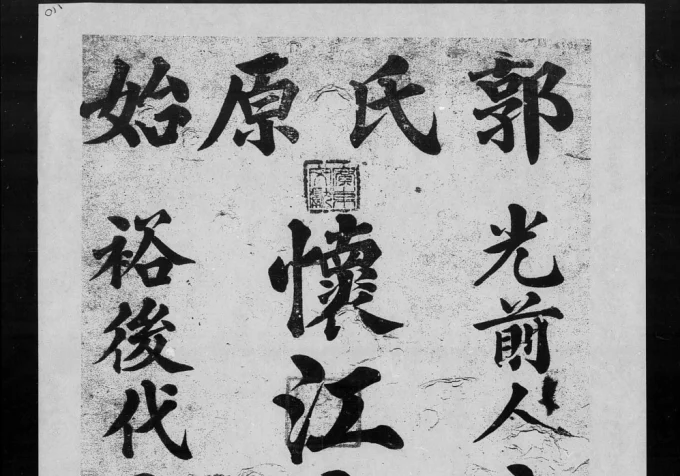 郭氏原始
光前人
懷江
裕後代